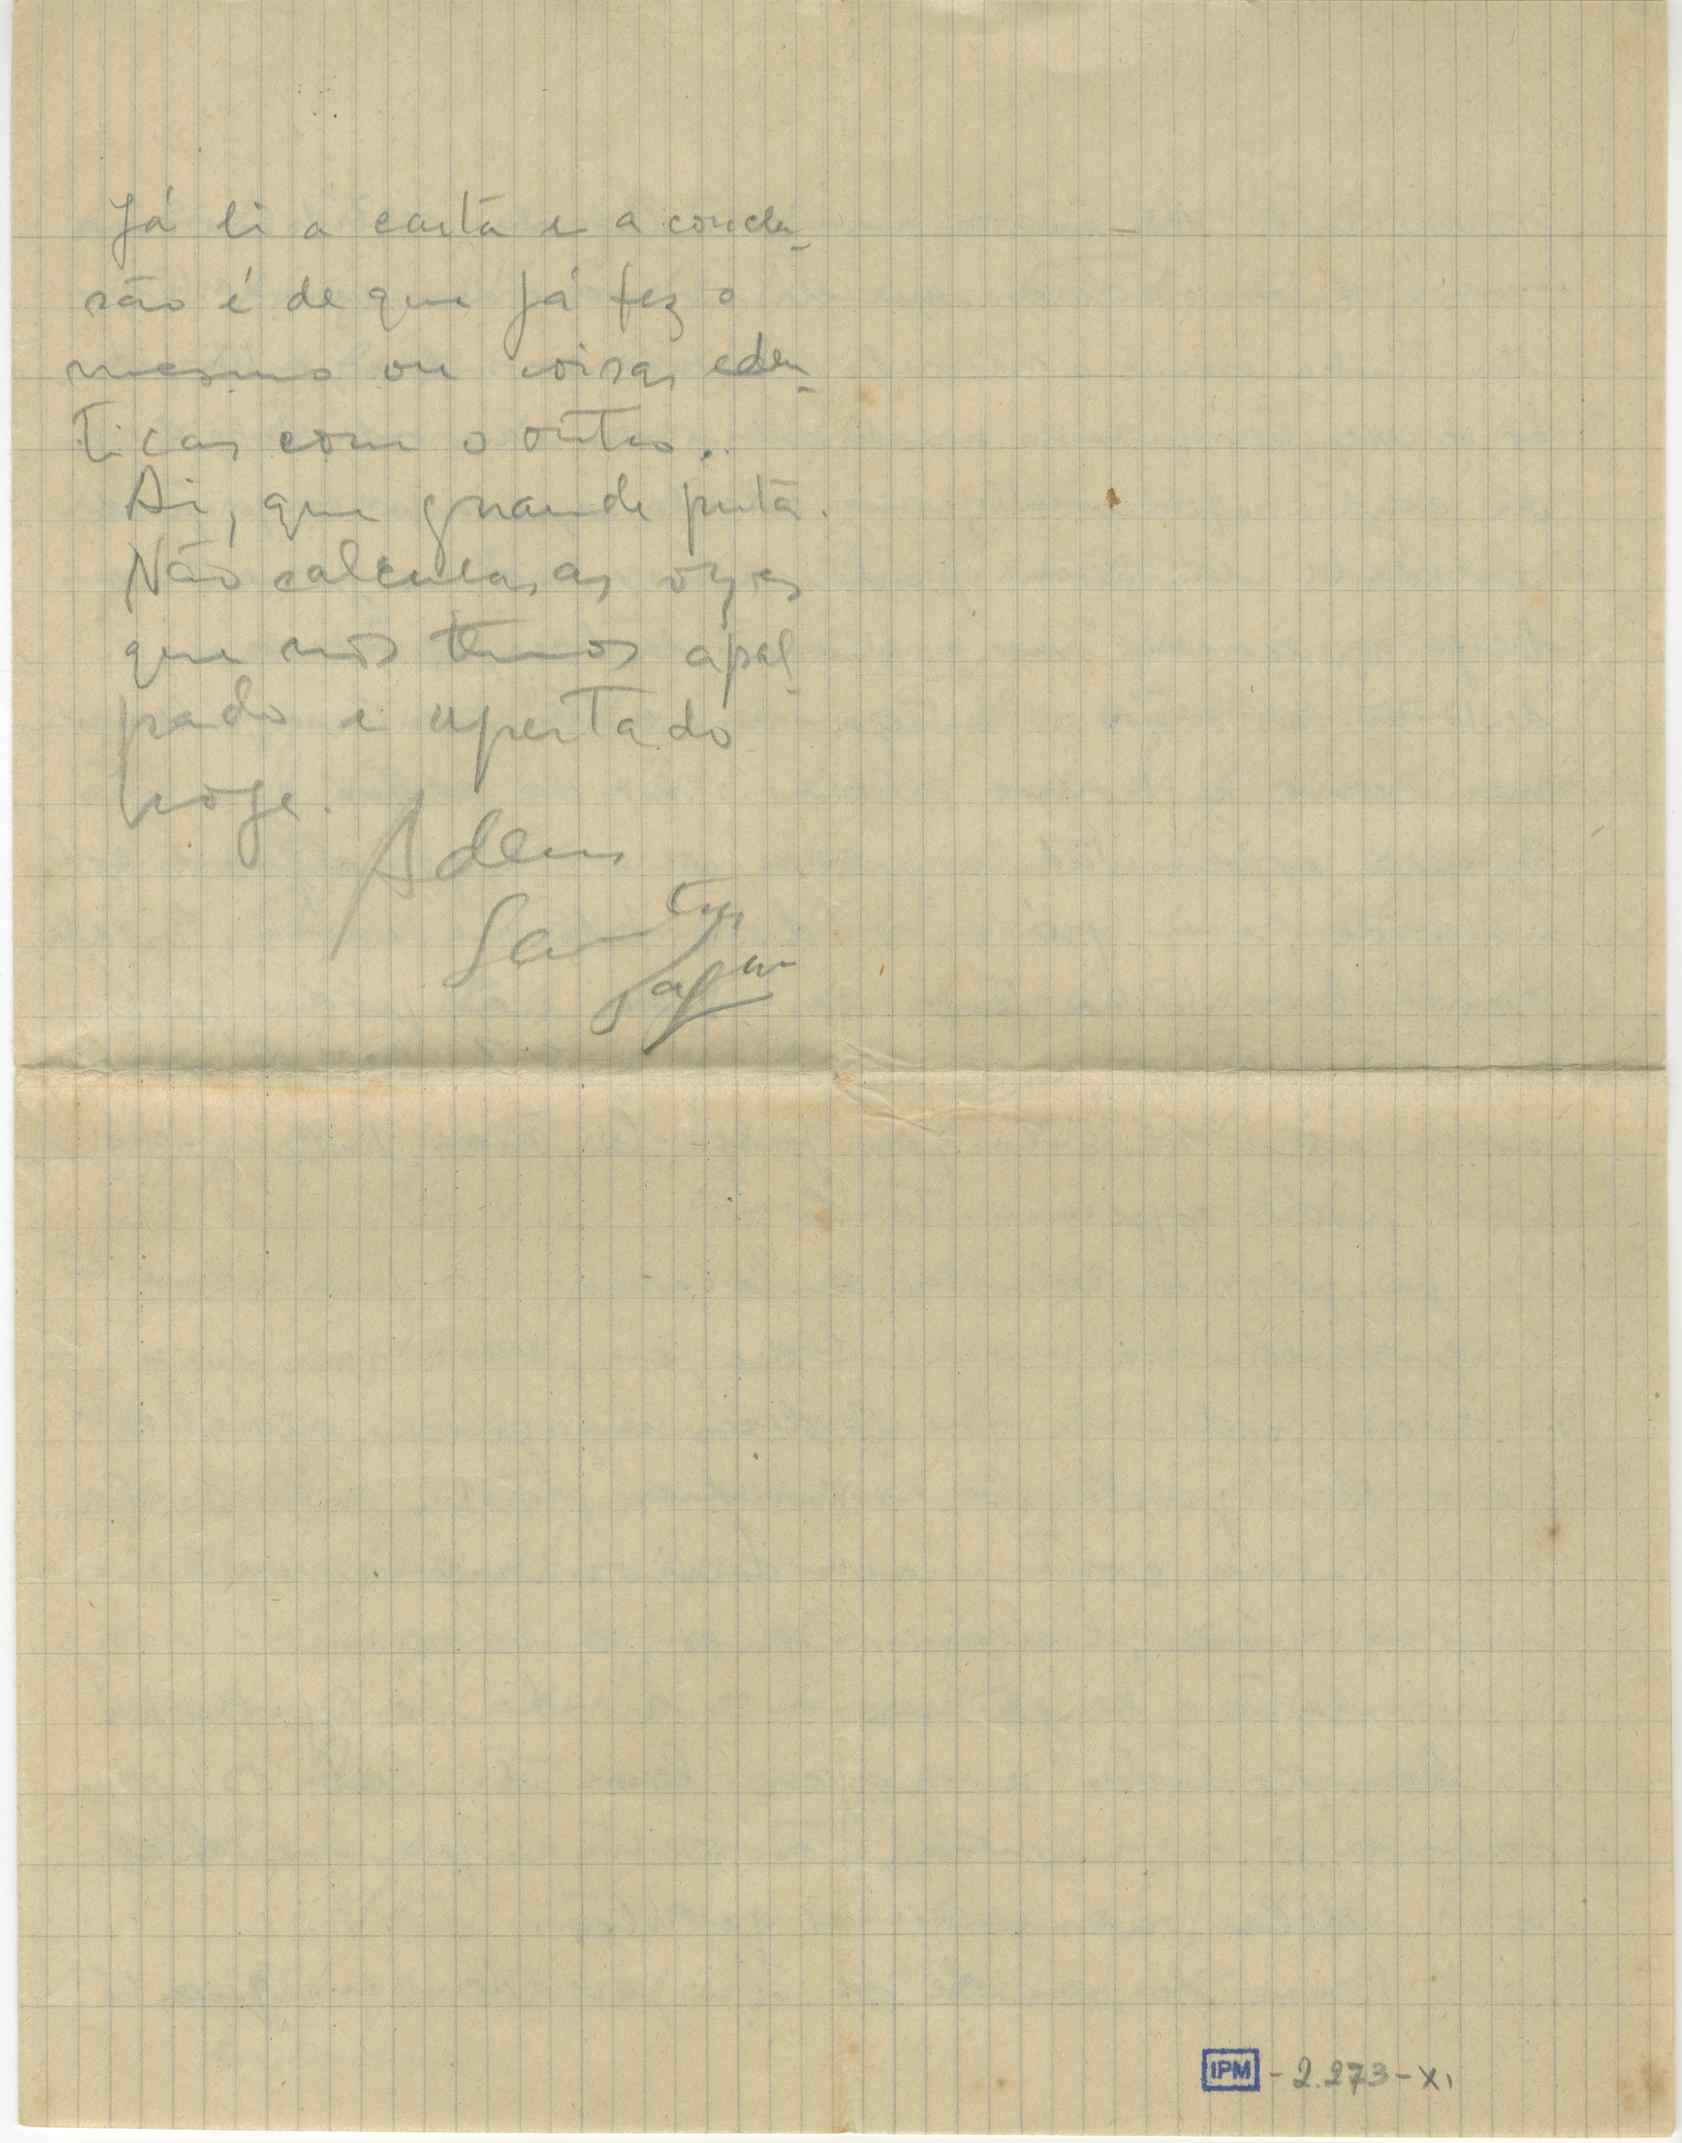 Já li a carta e a conclu-
são é de que já fez o
mesmo ou coisas eden-
ticas com o outro..
Ai, que grande puta.
Não calculas as
que nós temos apal-
pado e apertado
hoje.
Adeus
Santos
IPM - 2.273 - XI